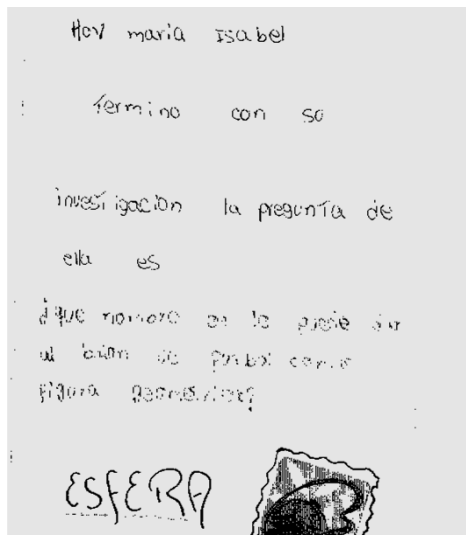 Hoy maria Isabel
Termino con su
investigacion la pregunta de
ella es
¿que nombre se le puede dar
al balon de futbol como
figura geometrica?
ESFERA